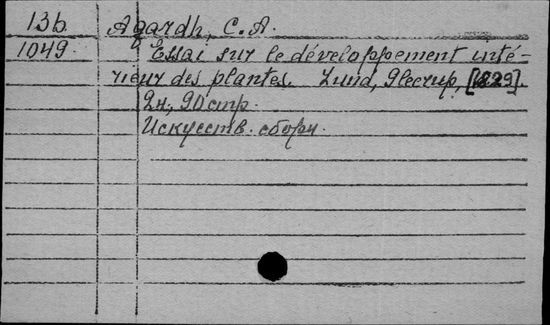 13b Agardh, C. A.
1049. Essai sur le développement inté-
rieur des plantes. Lund, Gleerup, [1829].
2н, 90 стр.
Искусств. сборн.